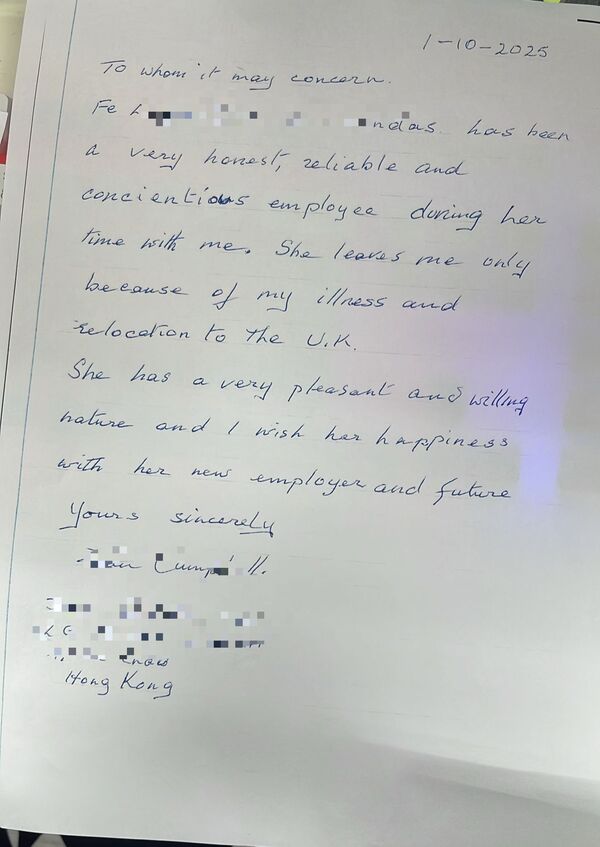 1-10-2025
To whom it may concern.
Fe has been
a very honest, reliable and
concientious employee during her
time with me. She leaves me only
because of my illness and
relocation to the U.K.
She has a very pleasant and willing
nature and I wish her happiness
with her new employer and future
Yours sincerely
Hong Kong